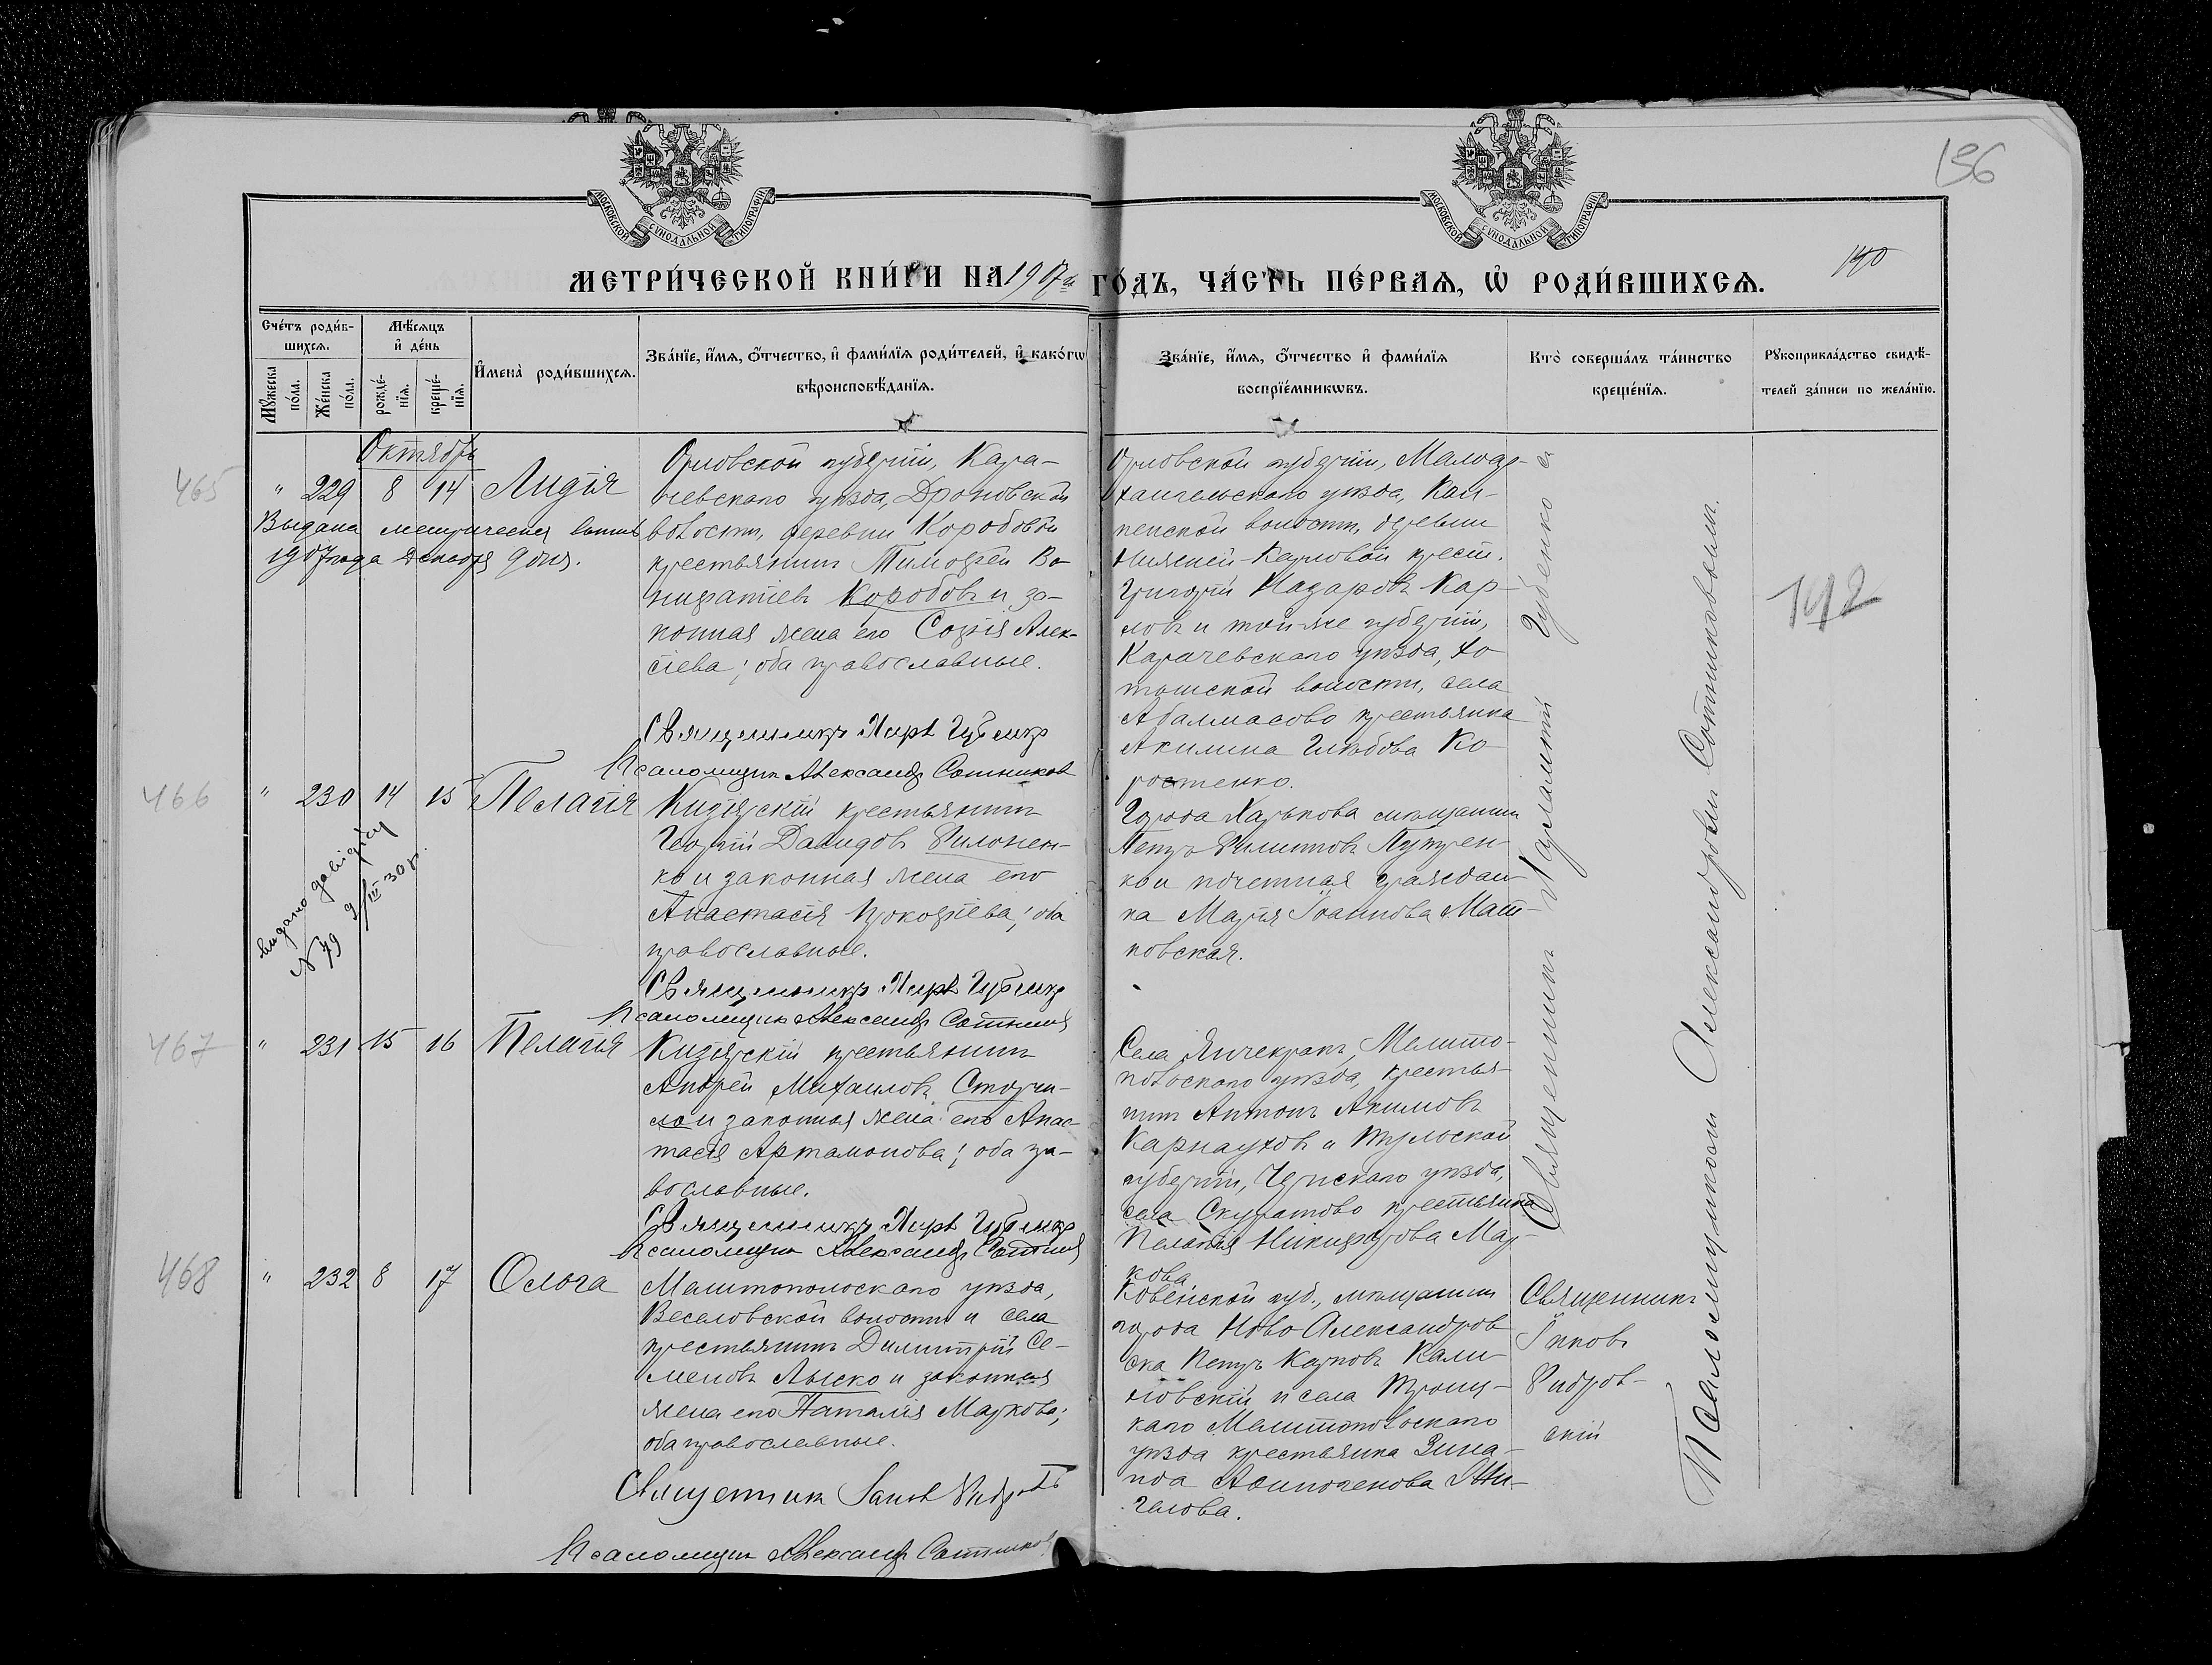 156
МОСКОВСКОЙ СѴНОДАЛЬНОЙ ТИПОГРАФІИ
МОСКОВСКОЙ СѴНОДАЛЬНОЙ ТИПОГРАФІИ
МЕТРИ́ЧЕСКОЙ КНИ́ГИ НА 1907й ГО́ДЪ, ЧА́СТЬ ПЕ́РВАѦ, Ѡ҆ РОДИ́ВШИХСѦ.
190
Сче́тъ роди́в-
шихсѧ.
Мꙋ́жеска по́ла.
Же́нска по́ла.
Мѣ́сѧцъ
и҆ де́нь
рожде́-
нїѧ.
креще́-
нїѧ.
И҆мена̀ роди́вшихсѧ.
Зва́нїе, и҆́мѧ, ѻ҆́тчество, и҆ фами́лїѧ роди́телей, и҆ како́гѡ
вѣроисповѣ́данїѧ.
Зва́нїе, и҆́мѧ, ѻ҆́тчество и҆ фами́лїѧ
воспрїе́мникѡвъ.
Кто̀ соверша́лъ та́инство
креще́нїѧ.
Рꙋкоприкла́дство свидѣ́-
телей за́писи по жела́нїю.
Октябрь
465
" 229 8 14 Лидія
Выдана метрическая выпись
1907 года Декабря 9 дня.
Орловской губерніи, Кара-
чевскаго уѣзда, Дроновской
волости, деревни Коробовой
крестьянинъ Тимофей Во
нифатіевъ Коробовъ и за-
конная жена его Софія Алек-
сіева; оба православные.
Священникъ Харл Губенко
Псаломщикъ Александръ Сотниковъ
Орловской губерніи, Малоар-
хангельскаго уѣзда,
волости, деревни
крест.
Григорій Назаровъ Кар-
ловъ и той же губерніи,
Карачевскаго уѣзда, Хо
тынской волости, села
Абалмасово крестьянка
Акилина Глѣбова Ко-
ростенко.
192
466
" 230 14 15 Пелагія
видано довідку
N 79 9/III 30 р.
Кизіярскій крестьянинъ
Георгій Давидовъ Филонен-
ко и законная жена его
Анастасія Прокофіева; оба
православные.
Священникъ Харл Губенко
Псаломщикъ Александръ Сотников
Города Харькова мѣщанинъ
Петръ Филипповъ
ко и почетная граждан-
ка Марія Іоаннова Маш-
новская.
467
" 231 15 16 Пелагія
Кизіярскій крестьянинъ
Андрей Михаиловъ Сторчи-
ло и законная жена его Анас-
тасія Артамонова; оба пра-
вославные.
Священникъ Харл Губенко
Псаломщикъ Александръ Сотников
Села Янчекракъ, Мелито-
польскаго уѣзда, крестья-
нинъ Антонъ Акимовъ
Карнауховъ и Тульской
губерніи, Чернскаго уѣзда,
села Скуратово крестьянка
Пелагія Никифорова Мар-
кова.
Священникъ Харлампій Губенко съ
Псаломщикомъ Александромъ Сотниковымъ.
468
" 232 8 17 Ольга
Мелитопольскаго уѣзда,
Веселовской волости и села
крестьянинъ Димитрій Се-
меновъ Лыско и законная
жена его Наталія Маркова;
оба православные.
Священникъ Іаковъ
Псаломщикъ Александръ Сотников
Ковенской губ., мѣщанинъ
города Ново Александров
ска Петръ Карповъ Кали-
новскій и села Троиц-
каго Мелитопольскаго
уѣзда крестьянка Зина-
ида
Священникъ
Іаковъ